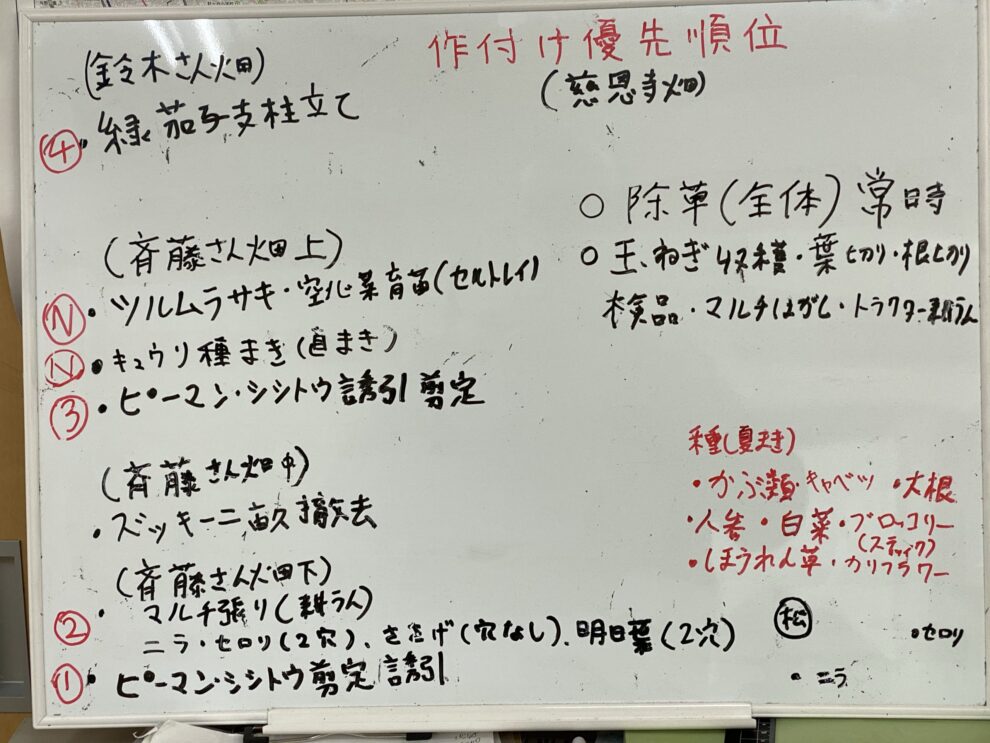 作付け優先順位
(慈恩寺畑)
(鈴木さん畑)
④・緑茄子支柱立て
(斉藤さん畑上)
Ⓝ・ツルムラサキ・空心菜育苗(セルトレイ)
Ⓝ・キュウリ種まき(直まき)
③・ピーマン・シシトウ誘引剪定
(斉藤さん畑中)
・ズッキーニ畝撤去
(斉藤さん畑下)
②・マルチ張り(耕うん)
ニラ・セロリ(2穴)、ささげ(穴なし)、明日葉(2穴)
①・ピーマン・シシトウ剪定誘引
○ 除草(全体)常時
○ 玉ねぎ収穫・葉切り・根切り
検品・マルチはがし・トラクター耕うん
種(夏まき)
・かぶ類・キャベツ ・大根
・人参・白菜・ブロッコリー
(スティック)
・ほうれん草・カリフラワー
㊗松
・セロリ
・ニラ